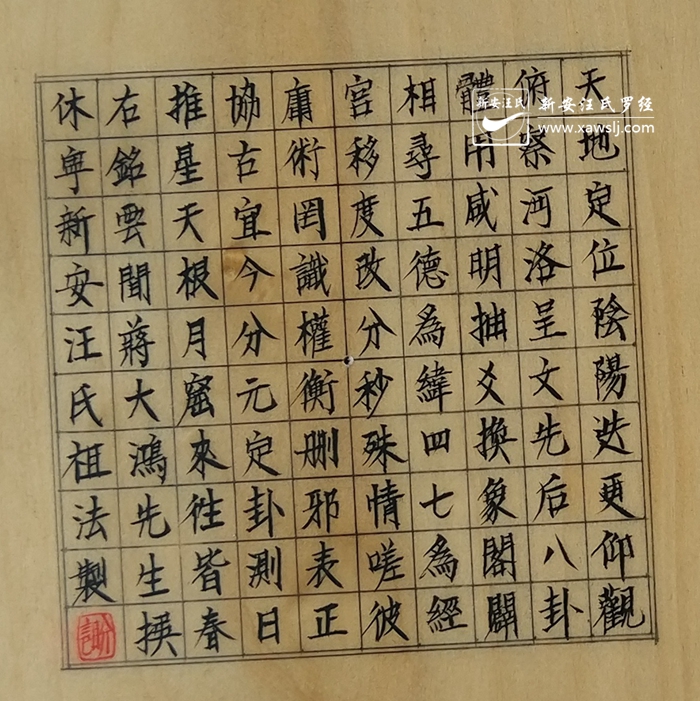 天地定位陰陽迭更仰觀
俯察河洛呈文先后八卦
體用咸明抽爻換象闔闢
相尋五德為緯四七為經
宮移度改分秒殊情嗟彼
庸術罔識權衡刪邪表正
協古宜今分元定卦測日
推星天根月窟來徃皆春
右銘雲間蔣大鴻先生撰
休寧新安汪氏祖法製
新安汪氏
新安汪氏罗经
www.xawslj.com